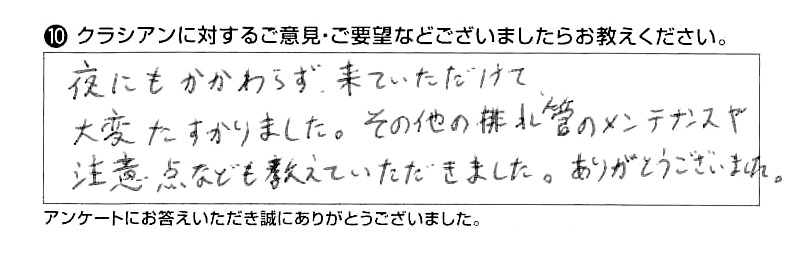 ⑩ クラシアンに対するご意見・ご要望などございましたらお教えください。
夜にもかかわらず、来ていただけて、
大変たすかりました。その他の排水管のメンテナンスや
注意点なども教えていただきました。ありがとうございました。
アンケートにお答えいただき誠にありがとうございました。